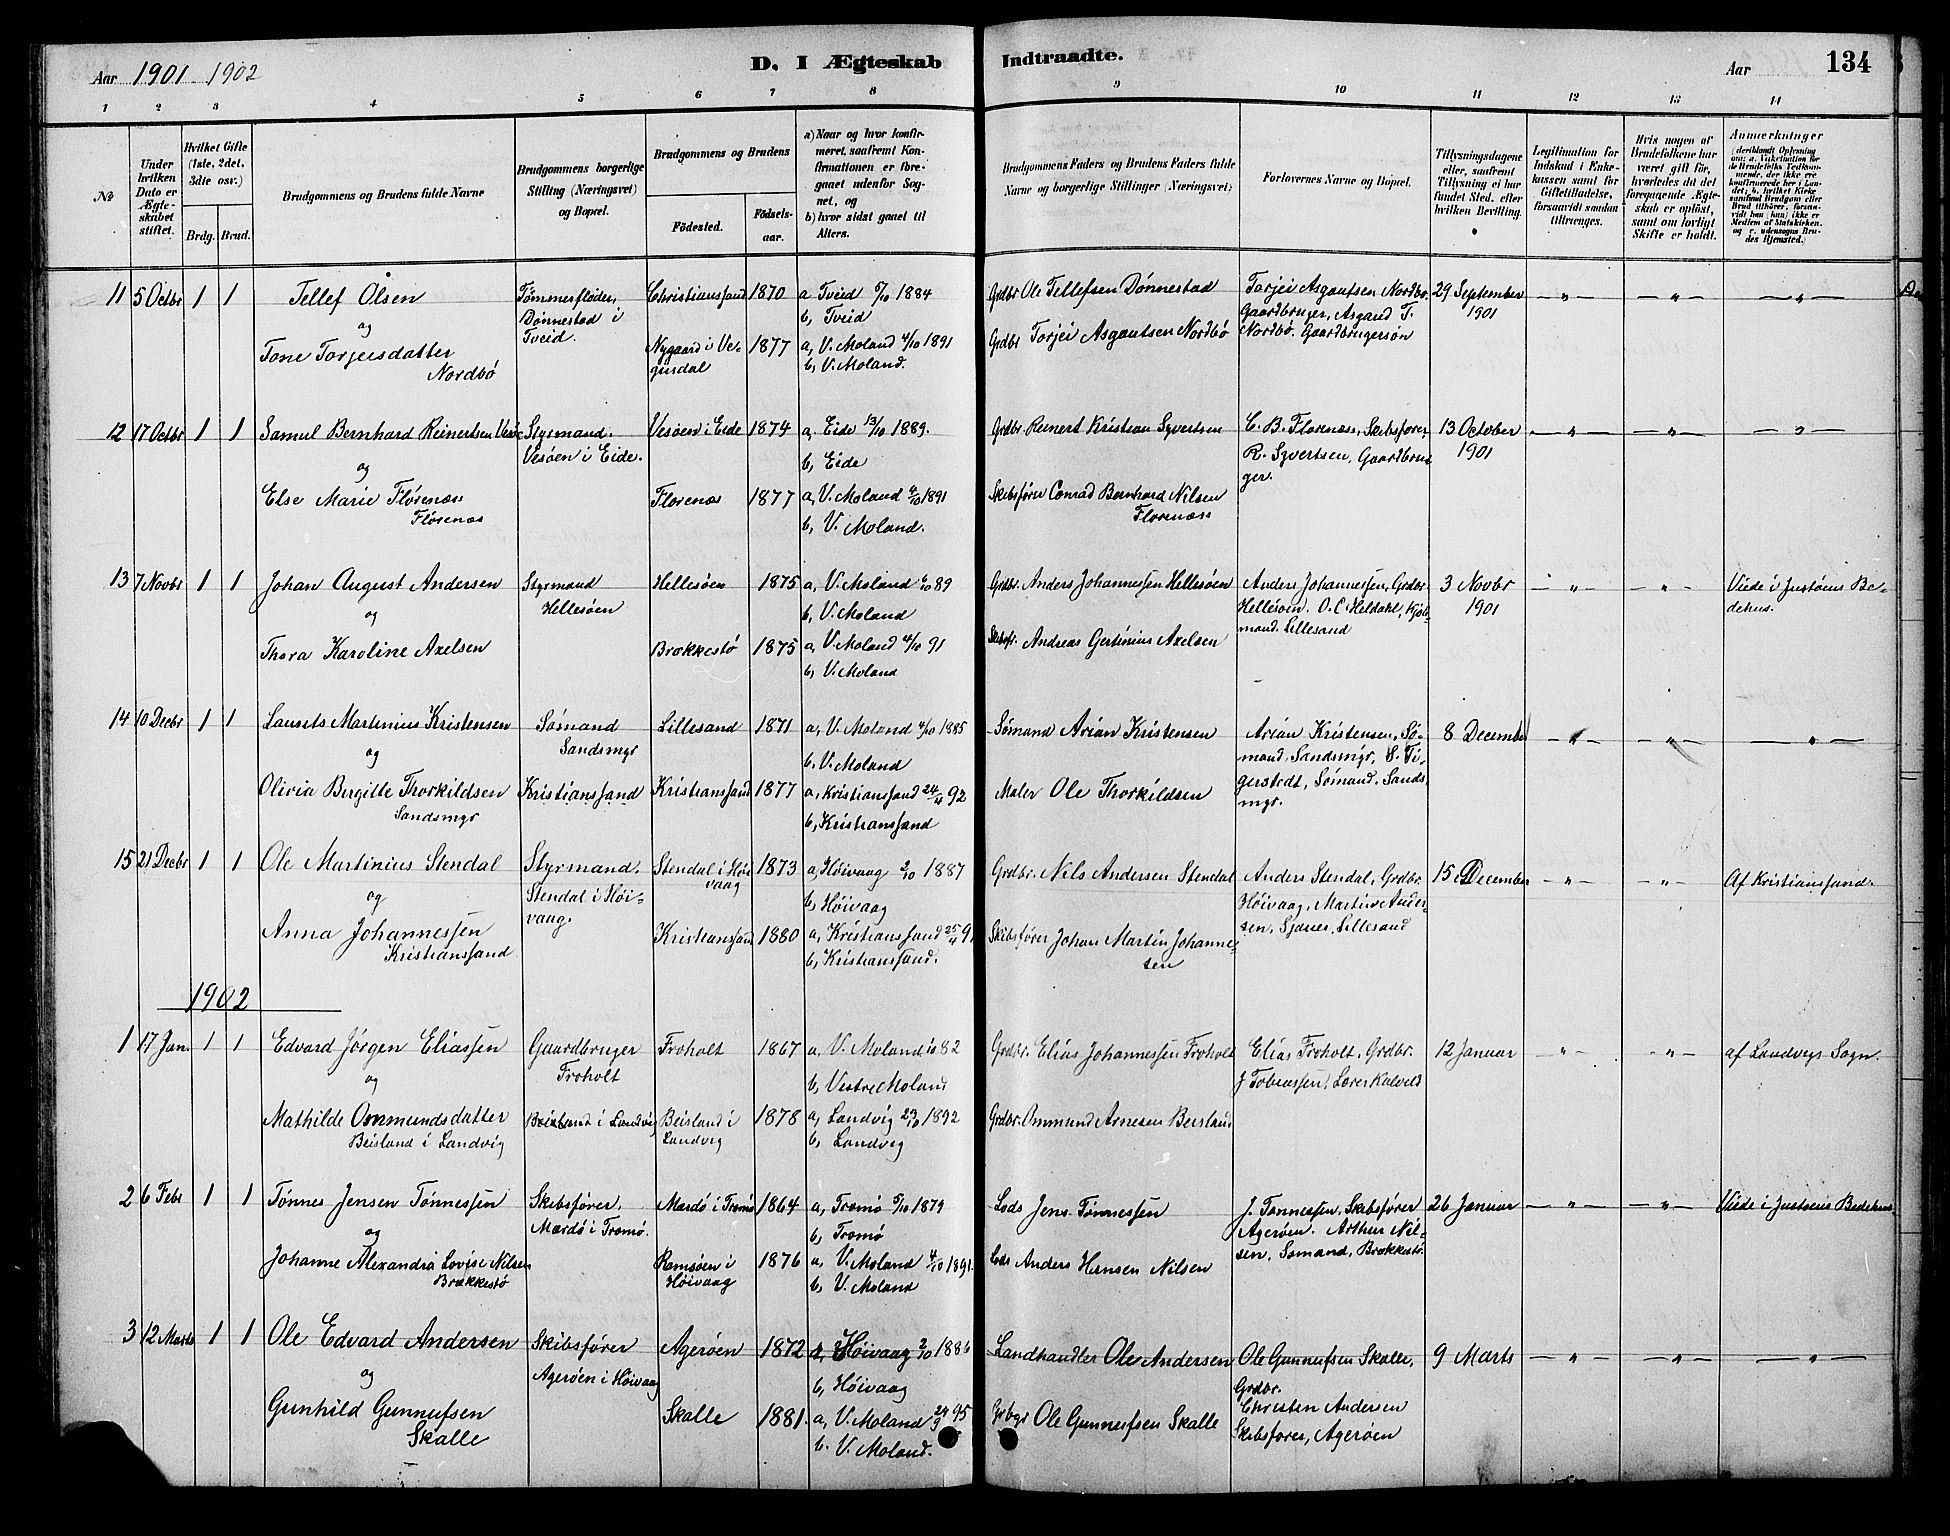 Aar 1901 1902
D. I Ægteskab Indtraadte.
Aar 134
1 2 3 4 5 6 7 8 9 10 11 12 13 14
No
Under hvilken Dato er Ægteskabet stiftet.
Hvilket Gifte (1ste, 2det, 3die osv.)
Brdg. Brud.
Brudgommens og Brudens fulde Navne
Brudgommens borgerlige Stilling (Næringsvei) og Bopæl.
Brudgommens og Brudens
Fødested.
Fødselsaar.
a) Naar og hvor konfirmeret, saafremt Konfirmationen er foregaaet udenfor Sognet, og
b) hvor sidst gaaet til Alters.
Brudgommens Faders og Brudens Faders fulde Navne og borgerlige Stillinger (Næringsvei)
Forlovernes Navne og Bopæl.
Tillysningsdagene eller, saafremt Tillysning ei har fundet Sted, efter hvilken Bevilling.
Legitimation for Indskud i Enkekassen samt for Giftetilladelse, forsaavidt saadan tiltrænges.
Hvis nogen af Brudefolkene har været gift før, hvorledes da det foregaaende Ægteskab er opløst, samt om lovligt Skifte er holdt.
Anmerkninger
11 5 Octbr 1 1 Tellef Olsen
og
Tone Torjeisdatter
Nordbø
Tømmerfløder,
Dønnestad i
Tveid.
Christianssand 1870 a Tveid 5/10 1884
b, Tveid
Nygaard i Ve-
gusdal 1877 a, V. Moland 4/10 1891
b, V. Moland.
Grdbr Ole Tellefsen Dønnestad
Grdbr Torjei Asgautsen Nordbø
Torjei Asgautsen Nordbø.
Gaardbruger, Asgaud T.
Nordbø. Gaardbrugersøn
29 September
1901
12 17 Octbr 1 1 Samul Bernhard Reinertsen Vesø
og
Else Marie Florenæs
Florenæs
Styrmand.
Vesøen i Eide.
Vesøen i Eide 1874 a. Eide 13/10 1889.
b, Eide
Florenæs 1877 a, V. Moland 4/10 1891
b, V. Moland.
Grdbr Reinert Kristian Syvertsen
Skibsfører Conrad Bernhard Nilsen
Florenæs
C. B. Florenæs, Skibsfører,
R. Syvertsen, Gaardbru-
ger.
13 October
1901
13 7 Novbr 1 1 Johan August Andersen
og
Thora Karoline Axelsen
Styrmand
Hellesøen
Hellesøen 1875 a, V. Moland 6/10 89
b, V. Moland
Brækkestø 1875 a, V. Moland 4/10 91
b, V. Moland
Grdbr. Anders Johannessen Hellesøen
Skibsfr. Andreas Gertinius Axelsen
Anders Johannessen, Grdbr
Hellesøen. O. C. Heldahl, Kjøb-
mand. Lillesand
3 Novbr
1901
Viede i Justøens Be-
dehus.
14 10 Decbr 1 1 Laurits Martinius Kristensen
og
Olivia Birgitte Thorkildsen
Sandsmyr
Sømand
Sandsmyr
Kristianssand
Lillesand 1871 a, V. Moland 4/10 1885
b, V. Moland
Kristianssand 1877 a, Kristianssand 24/4 92
b, Kristianssand
Sømand Arian Kristensen
Maler Ole Thorkildsen
Arian Kristensen, Sø-
mand, Sandsmyr, S. Ti-
gerstedt, Sømand, Sands-
myr.
8 December
15 21 Decbr 1 1 Ole Martinius Stendal
og
Anna Johannessen
Kristianssand
Styrmand.
Stendal i Høi-
vaag.
Stendal i Høi-
vaag 1873 a, Høivaag 2/10 1887
b, Høivaag
Kristianssand 1880 a, Kristianssand 25/4 9
b, Kristianssand.
Grdbr. Nils Andersen Stendal
Skibsfører Johan Martin Johanne-
sen
Anders Stendal, Grdbr.
Høivaag, Martin Ander-
sen, Lillesand
15 December
Af Kristianssand.
1902
1 17 Jan. 1 1 Edvard Jørgen Eliassen
og
Mathilde Ommundsdatter
Beisland i Landvig
Gaardbruger
Froholt
Beisland i Landvig
Froholt 1867 a, V. Moland 1/10 82
b, Vestre Moland
Beisland i
Landvig 1878 a, Landvig 23/10 1892
b, Landvig
Grdbr. Elias Johannessen Froholt
Grdbr. Ommund Arnesen Beisland
Elias Froholt, Grdbr.
J Tobiassen, Lærer Kalvild
12 Januar
af Landvigs Sogn.
2 6 Febr 1 1 Tønnes Jensen Tønnessen
og
Johanne Alexandra Lovise Nilsen
Brækkestø
Skibsfører.
Mærdø i Tromø.
Mærdø i Tromø 1864 a, Tromø 5/10 1879
b, Tromø
Ramsøen i
Høivaag 1876 a, V. Moland 4/10 1891.
b, V. Moland
Lods Jens Tønnessen
Lods Anders Hansen Nilsen
J. Tønnessen, Skibsfører
Agerøen. Arthur Nil-
sen, Sømand, Brækkestø.
26 Januar
Viede i Justøens Bedehus
3 12 Marts 1 1 Ole Edvard Andersen
og
Gunhild Gunnufsen
Skalle
Skibsfører
Agerøen i Høivaag
Agerøen 1872 a, Høivaag 2/10 1886
b, Høivaag
Skalle 1881. a, V. Moland 29/9 95
b. V. Moland.
Landhandler Ole Andersen
Grbgr Ole Gunnufsen Skalle
Ole Gunnufsen Skalle,
Grdbr.
Christen Andersen
Skibsfører, Agerøen
9 Marts